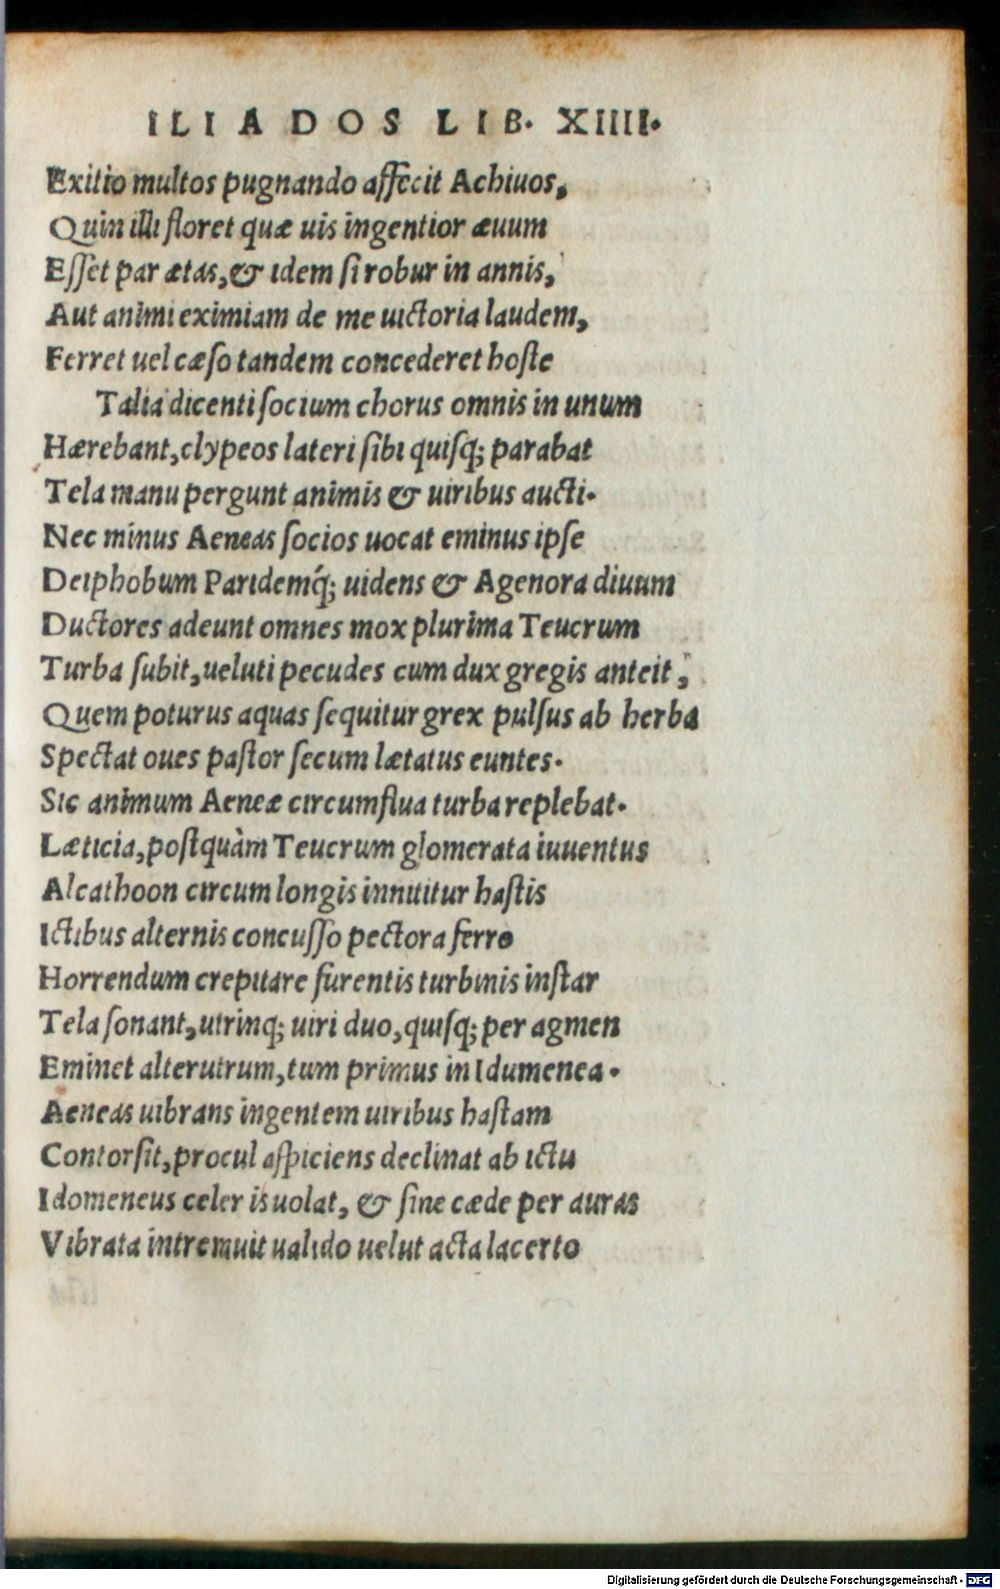 ILIADOS LIB. XIIII.
Exitio multos pugnando affecit Achiuos,
Quin illi floret quæ uis ingentior æuum
Eſſet par ætas, & idem ſi robur in annis,
Aut animi eximiam de me uictoria laudem,
Ferret uel cæſo tandem concederet hoſte
Talia dicenti ſocium chorus omnis in unum
Hærebant, clypeos lateri ſibi quiſq; parabat
Tela manu pergunt animis & uiribus aucti.
Nec minus Aeneas ſocios uocat eminus ipſe
Deiphobum Paridemq́; uidens & Agenora diuum
Ductores adeunt omnes mox plurima Teucrum
Turba ſubit, ueluti pecudes cum dux gregis anteit,
Quem poturus aquas ſequitur grex pulſus ab herba
Spectat oues paſtor ſecum lætatus euntes.
Sic animum Aeneæ circumflua turba replebat.
Læticia, poſtquàm Teucrum glomerata iuuentus
Alcathoon circum longis innititur haſtis
Ictibus alternis concuſſo pectora ferro
Horrendum crepitare furentis turbinis inſtar
Tela ſonant, utrinq; uiri duo, quiſq; per agmen
Eminet alterutrum, tum primus in Idumenea.
Aeneas uibrans ingentem uiribus haſtam
Contorſit, procul aſpiciens declinat ab ictu
Idomeneus celer is uolat, & ſine cæde per auras
Vibrata intremuit ualido uelut acta lacerto
Digitalisierung gefördert durch die Deutsche Forschungsgemeinschaft - DFG